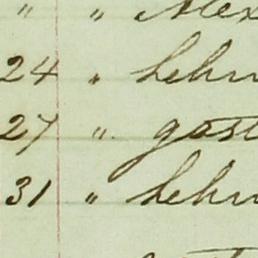 " " Alex
24 " Lehn
27 " gast
31 " Lehn